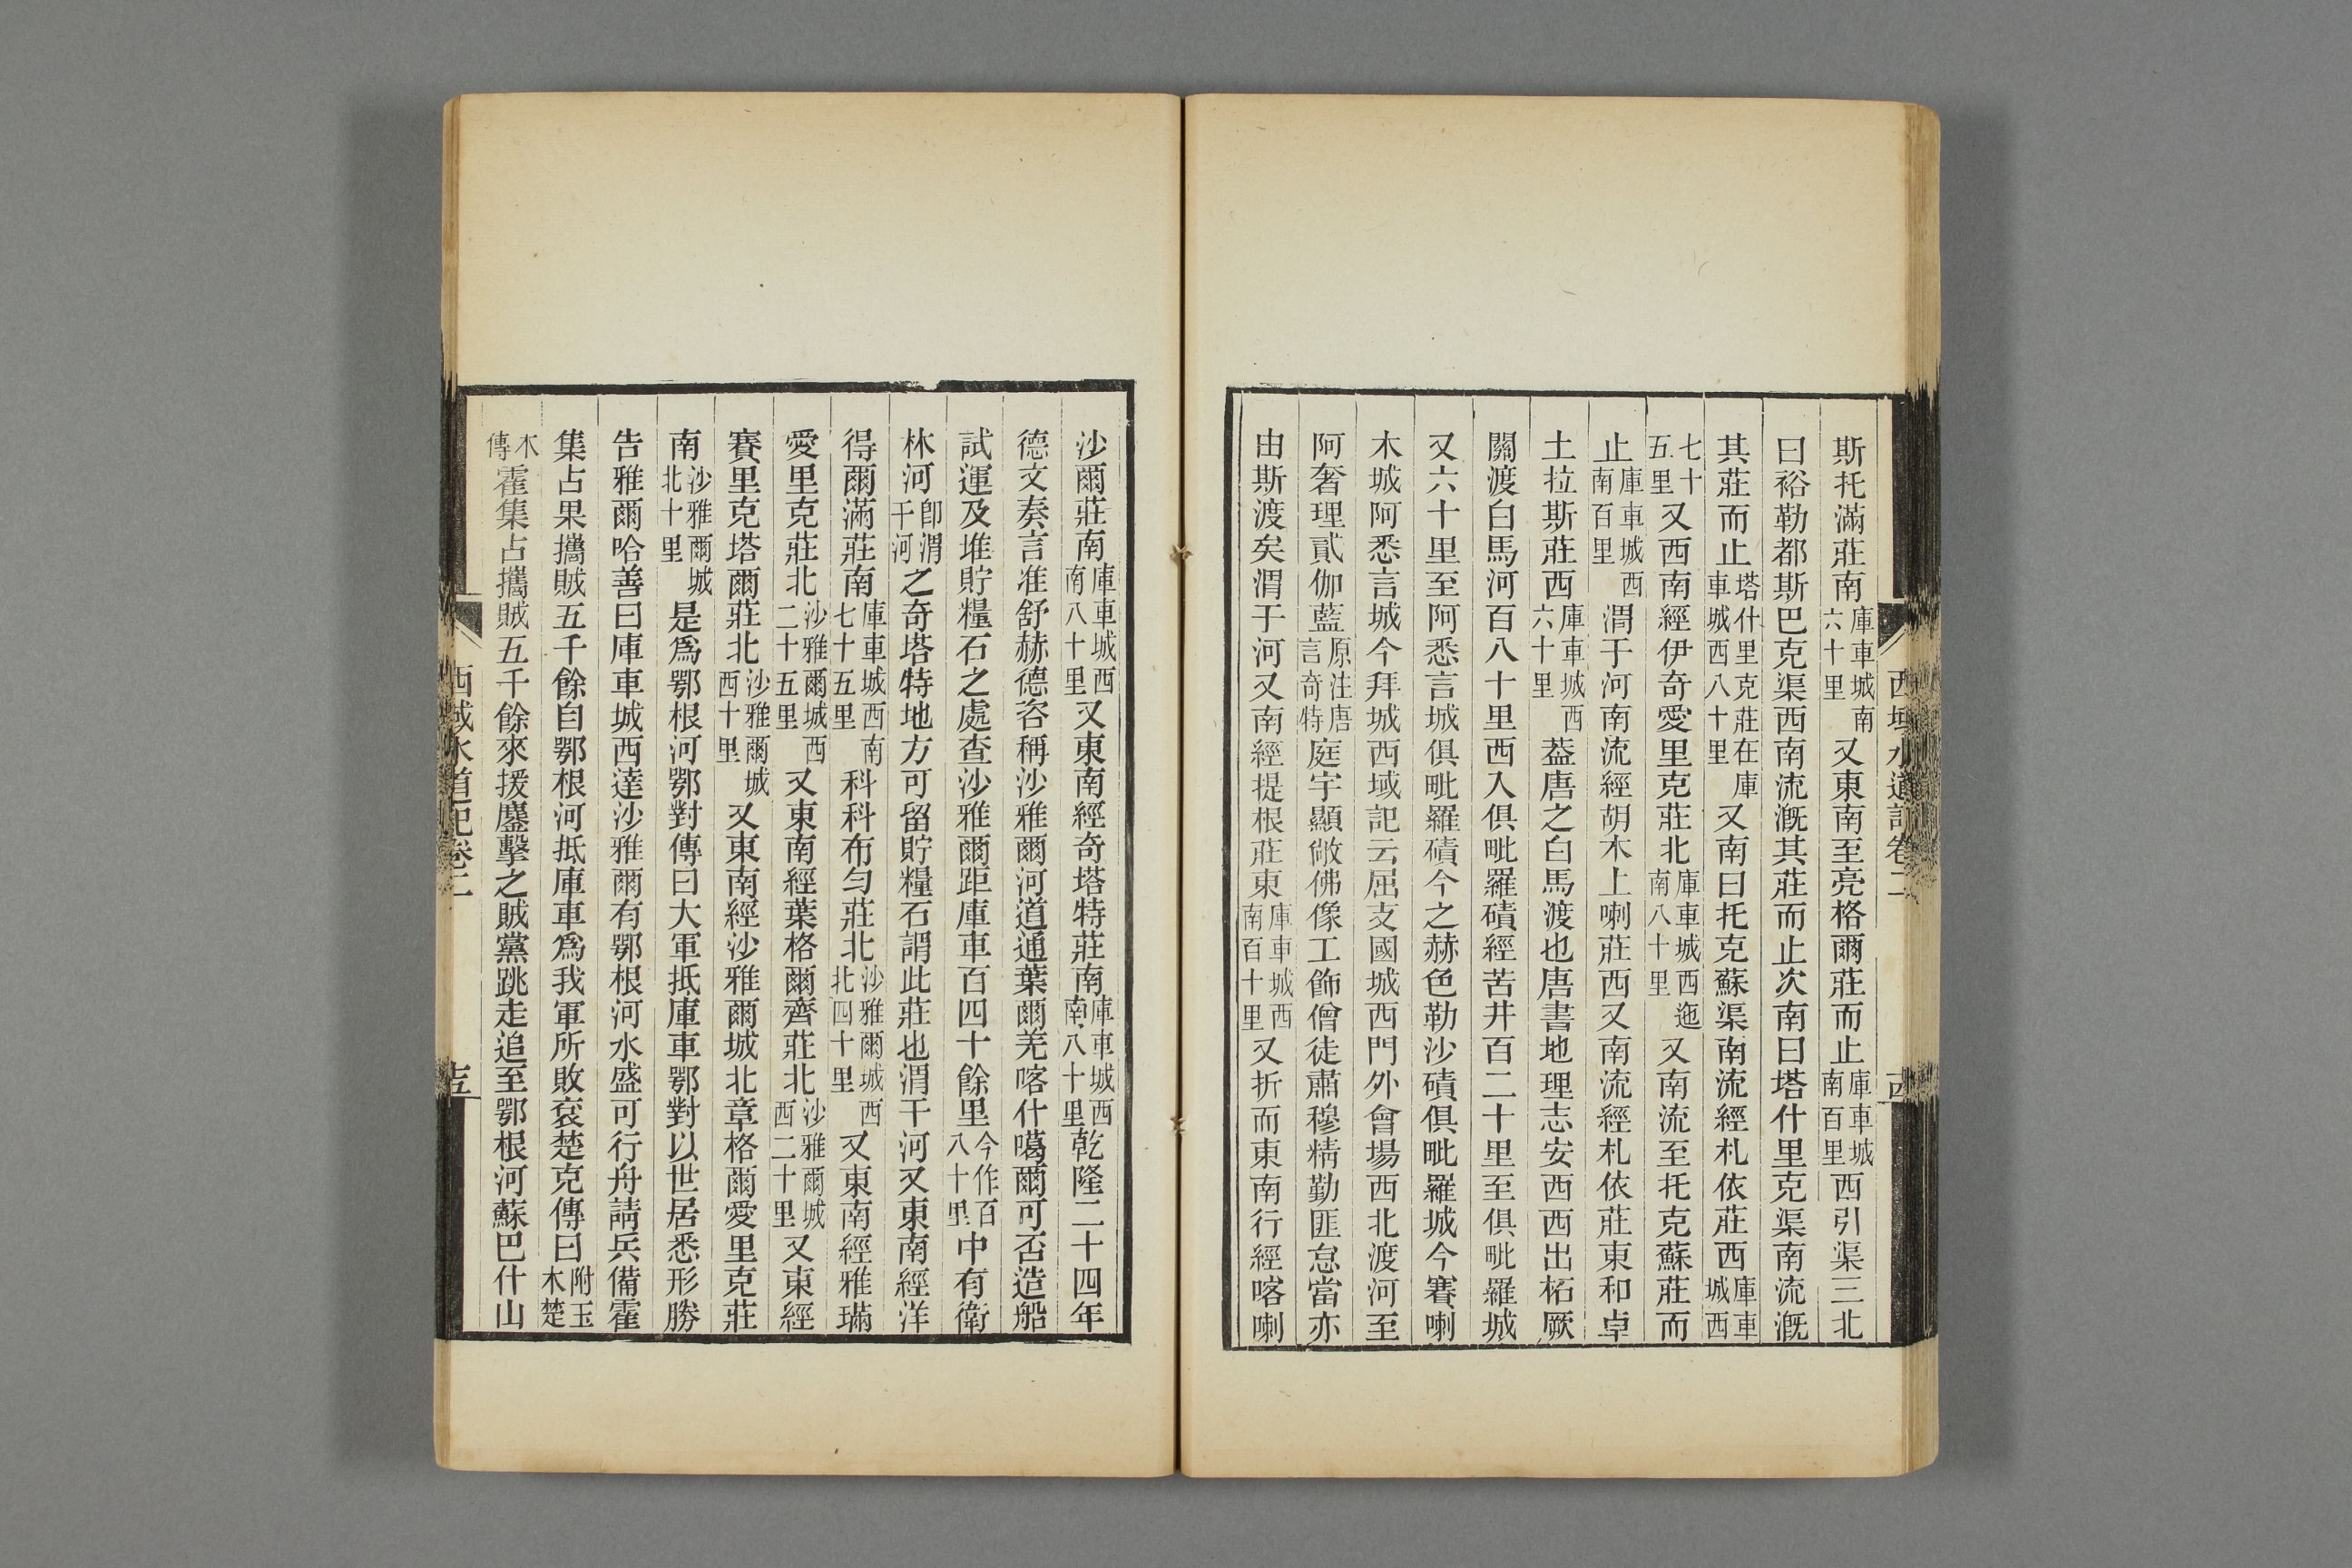 西域水道記卷二
斯托滿莊南庫車城南六十里又東南至亮格爾莊而止庫車城南百里西引渠三北
曰裕勒都斯巴克渠西南流漑其莊而止次南曰塔什里克渠南流漑
其莊而止塔什里克莊在庫車城西八十里又南曰托克蘇渠南流經札依莊西庫車城西
七十五里又西南經伊奇愛里克莊北庫車城西迤南八十里又南流至托克蘇莊而
止庫車城西南百里渭于河南流經胡木上喇莊西又南流經札依莊東和卓
土拉斯莊西庫車城西六十里葢唐之白馬渡也唐書地理志安西西出柘厥
關渡白馬河百八十里西入俱毗羅磧經苦井百二十里至俱毗羅城
又六十里至阿悉言城俱毗羅磧今之赫色勒沙磧俱毗羅城今賽喇
木城阿悉言城今拜城西域記云屈支國城西門外會場西北渡河至
阿奢理貳伽藍原注唐言奇特庭宇顯敞佛像工飾僧徒肅穆精勤匪怠當亦
由斯渡矣渭于河又南經提根莊東庫車城西南百十里又折而東南行經喀喇
沙爾莊南庫車城西南八十里又東南經奇塔特莊南庫車城西南八十里乾隆二十四年
德文奏言准舒赫德咨稱沙雅爾河道通葉爾羌喀什噶爾可否造船
試運及堆貯糧石之處查沙雅爾距庫車百四十餘里今作百八十里中有衛
林河卽渭干河之奇塔特地方可留貯糧石謂此莊也渭干河又東南經洋
得爾滿莊南庫車城西南七十五里科科布勻莊北沙雅爾城西北四十里又東南經雅璊
愛里克莊北沙雅爾城西二十五里又東南經葉格爾齊莊北沙雅爾城西二十里又東經
賽里克塔爾莊北沙雅爾城西十里又東南經沙雅爾城北章格爾愛里克莊
南沙雅爾城北十里是爲鄂根河鄂對傳曰大軍抵庫車鄂對以世居悉形勝
告雅爾哈善曰庫車城西達沙雅爾有鄂根河水盛可行舟請兵備霍
集占果攜賊五千餘自鄂根河抵庫車爲我軍所敗袞楚克傳曰附玉木楚
木傳霍集占攜賊五千餘來援鏖擊之賊黨跳走追至鄂根河蘇巴什山